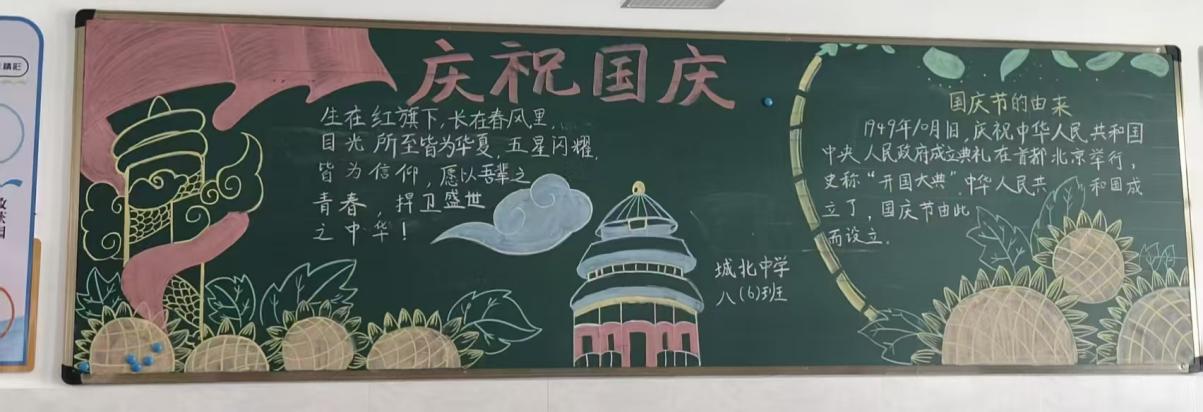 庆祝国庆
生在红旗下,长在春风里,
目光所至皆为华夏,五星闪耀,
皆为信仰,愿以吾辈之
青春,捍卫盛世
之中华!
城北中学
八(6)班
国庆节的由来
1949年10月1日,庆祝中华人民共和国
中央人民政府成立典礼在首都北京举行,
史称“开国大典”,中华人民共 和国成
立了,国庆节由此
而设立.